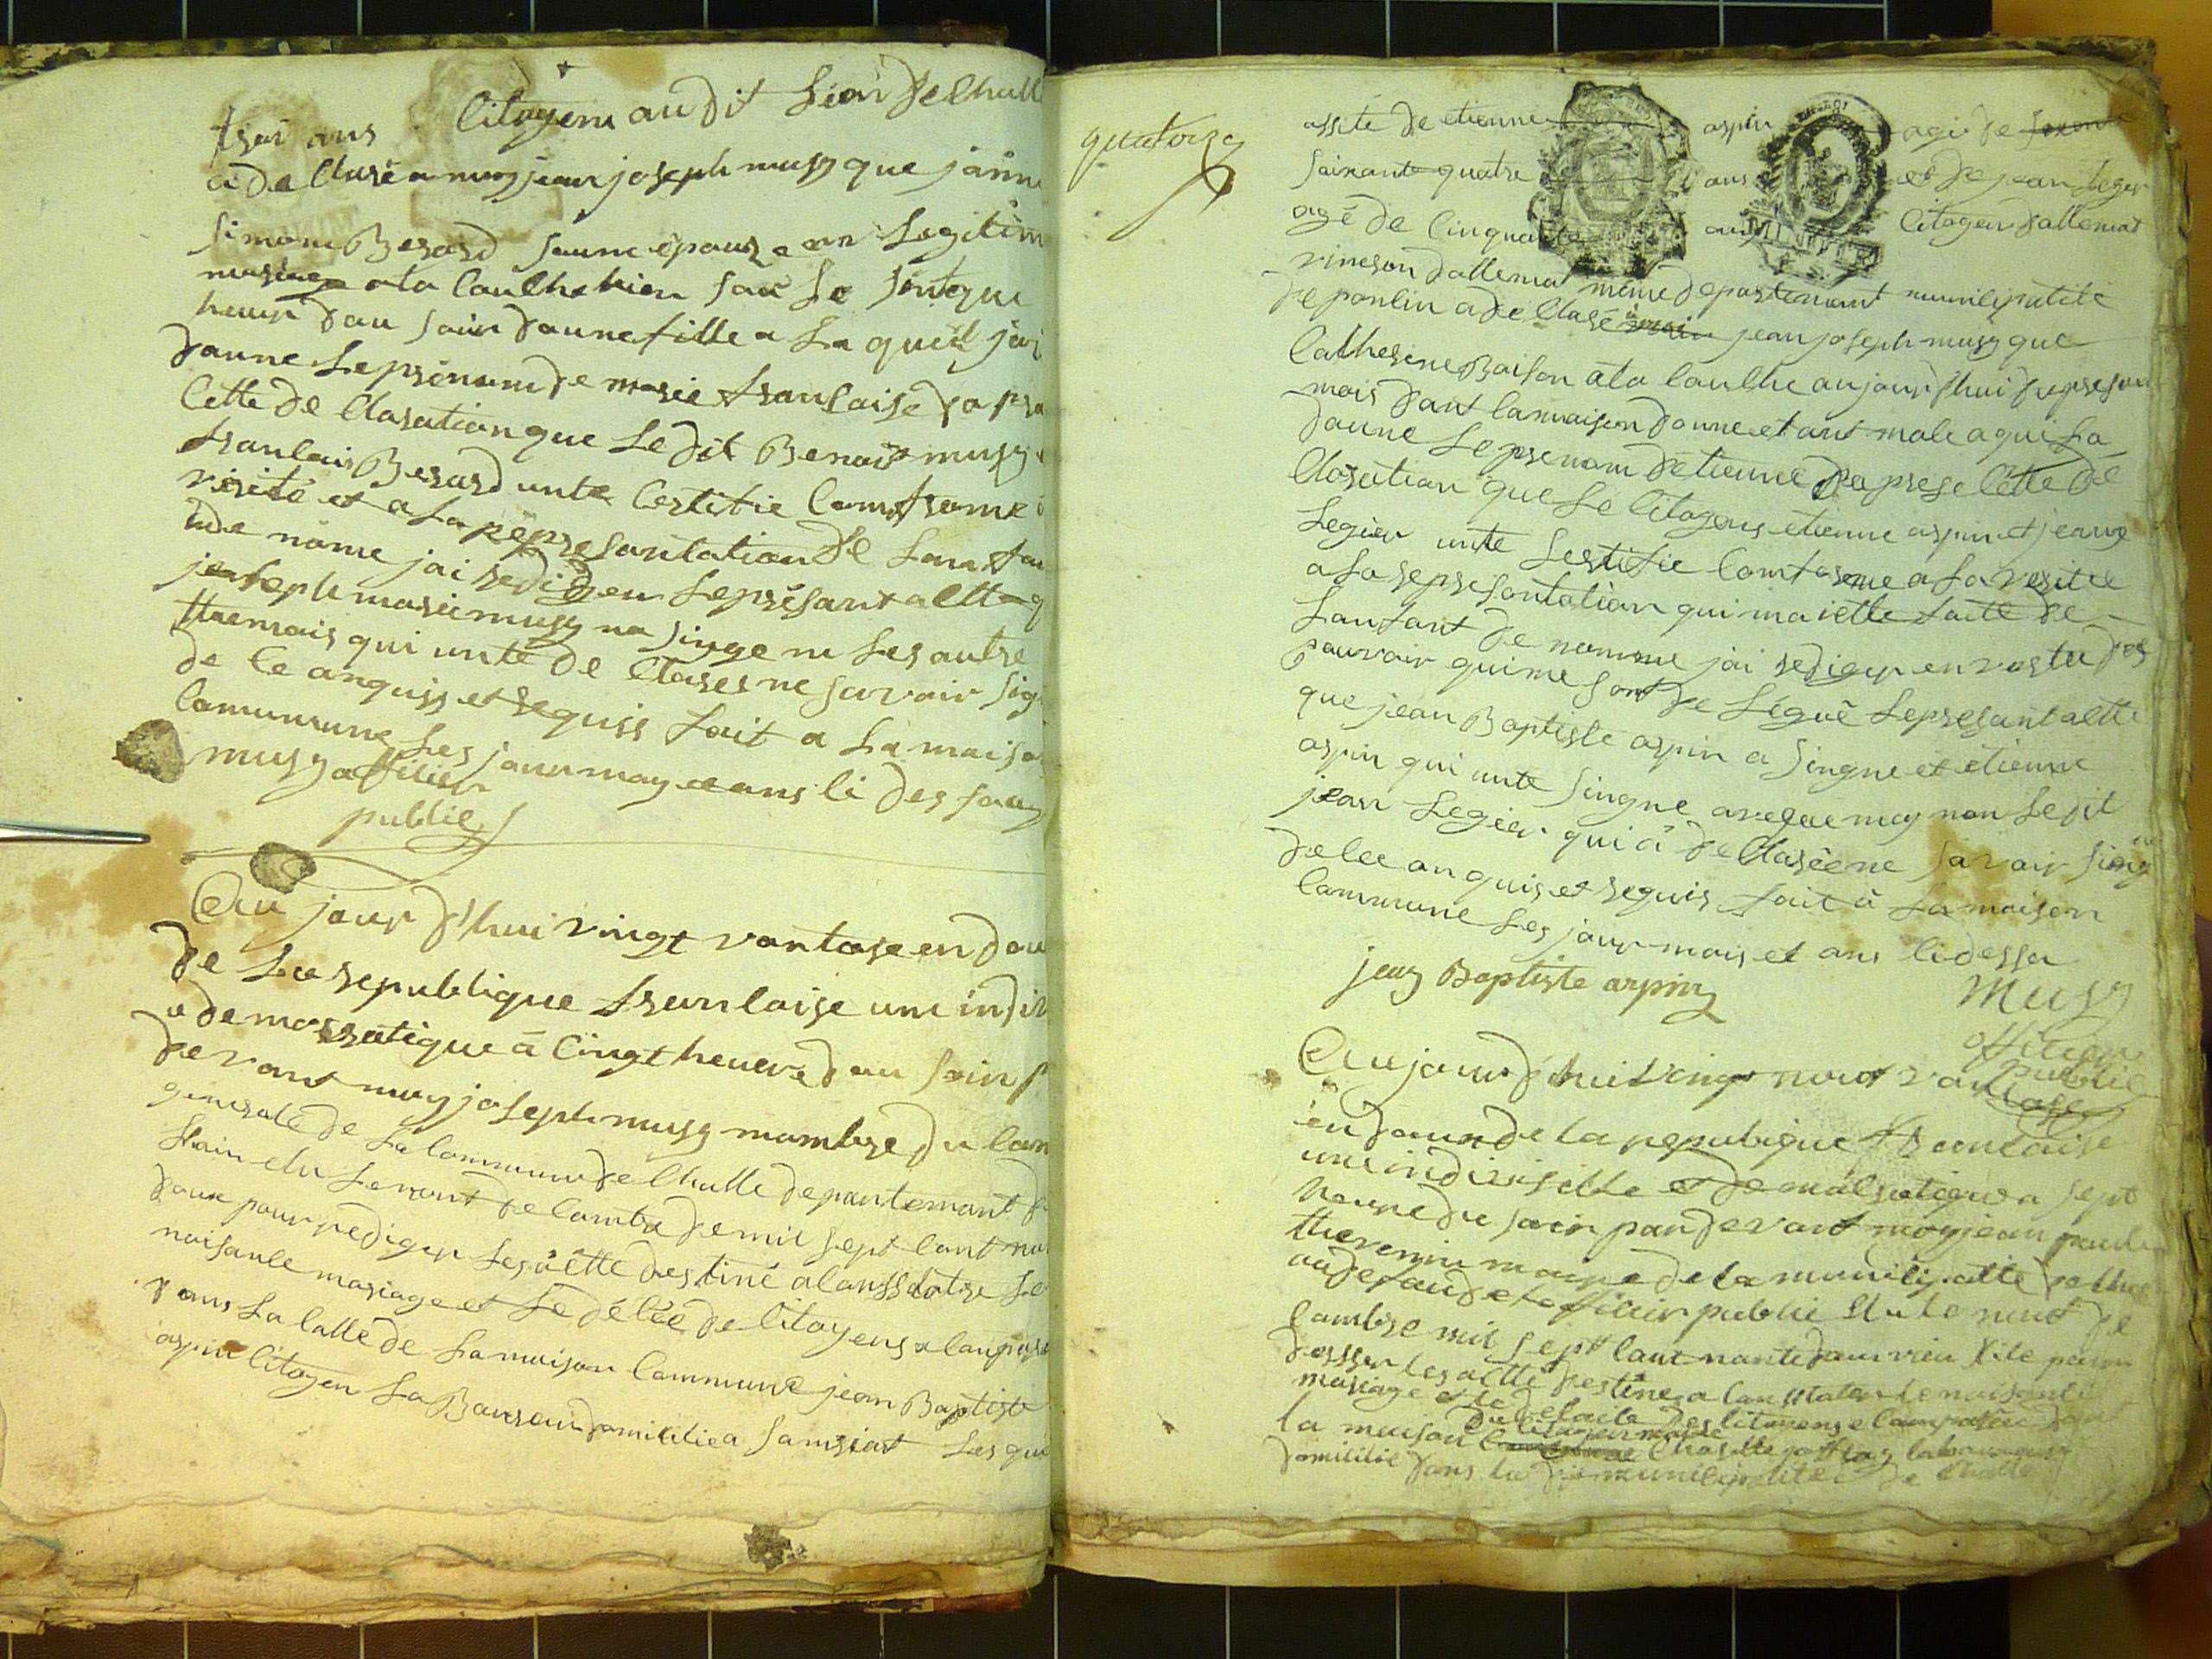 trai ans Citoyens au dit lieu de Challe
a de Clasé a moy jean joseph musy que janne
simone Besard saune épouze an legitim
mariage ata Caulhe hier saur le sintque
heure dau soir daune fille a la quell jai
daune le prénom de marie fransaise da pre
Cette de Clasation que le dit Benait musy
franlais Besard unte Certifie Comfrome
verité et a la représantation de lanfan
de nome jai redigeu le présant aCtte q
joseph marie musy na singe ne les autre
ttemais qui unte de Clares ne savoir sig
de Ce anquiss et requiss fait a la maiso
Communne les jour moy et ans Ci des sau
musy offisier
public
Au jour d'huit vingt vantose en dau
de la republique fransaise une indiv
e demosratique à Cinqt heuere dau soir p
devant moy joseph musy mambre du Con
generale de la Commune de Challe departemant d
l'ain elu le vant de Cambre de mil sept Cant na
daux pour rediger les aCtte destiné a Consstatre le
naisance mariage et le déCée de Citoyens a Conparu
dans la Calle de la maison Commune jean Baptiste
aspin Citoyen la Baureur domicilie a Samsiat les qui
quatorze
assité de etienne aspin agé de
saixante quatre ans et de jean legier
agé de Cinquante ans Citoyen d'allemat
vineron d'allemat même departemant municipatité
de ponlin a de Clasé jean joseph musy que
Catherine Baison ata Caulhe aujour d'hui du preson
mois dant la maison daune et ant male a qui la
daune le prenom de tienne da prese Cette de
Closation que le Citoyens etienne aspin et jeans
Legier unte Sertifie Comforme a la verite
a la represantation qui ma ietté faite de
Lanfant de nomme jai rediger en vertu des
pauvoir qui me sont de légué le presant aCtte
que jean Baptiste aspin a singne et etienne
aspin qui unte singne aveque moy non le dit
jean Legier qui a de Clasée ne savoir sing
de Ce an quis et requis fait à la maison
Commune les jour mois et ans Ci desser
jean Baptiste arpin
Musy
offisier
public
Aujourd'hui vingt neuf vantose
en daux de la republique francaise
une indivisible et democratique a sept
heure du soir pardevant moy jean
thevenin maire de la municipalité
au defaud de officier public elu le neuf de
cambre mil sept cant nante
desser les actte destine a Consttater le naisante
mariage et le
des citoyens
la maison
domicilié dans la municipalité de Challe